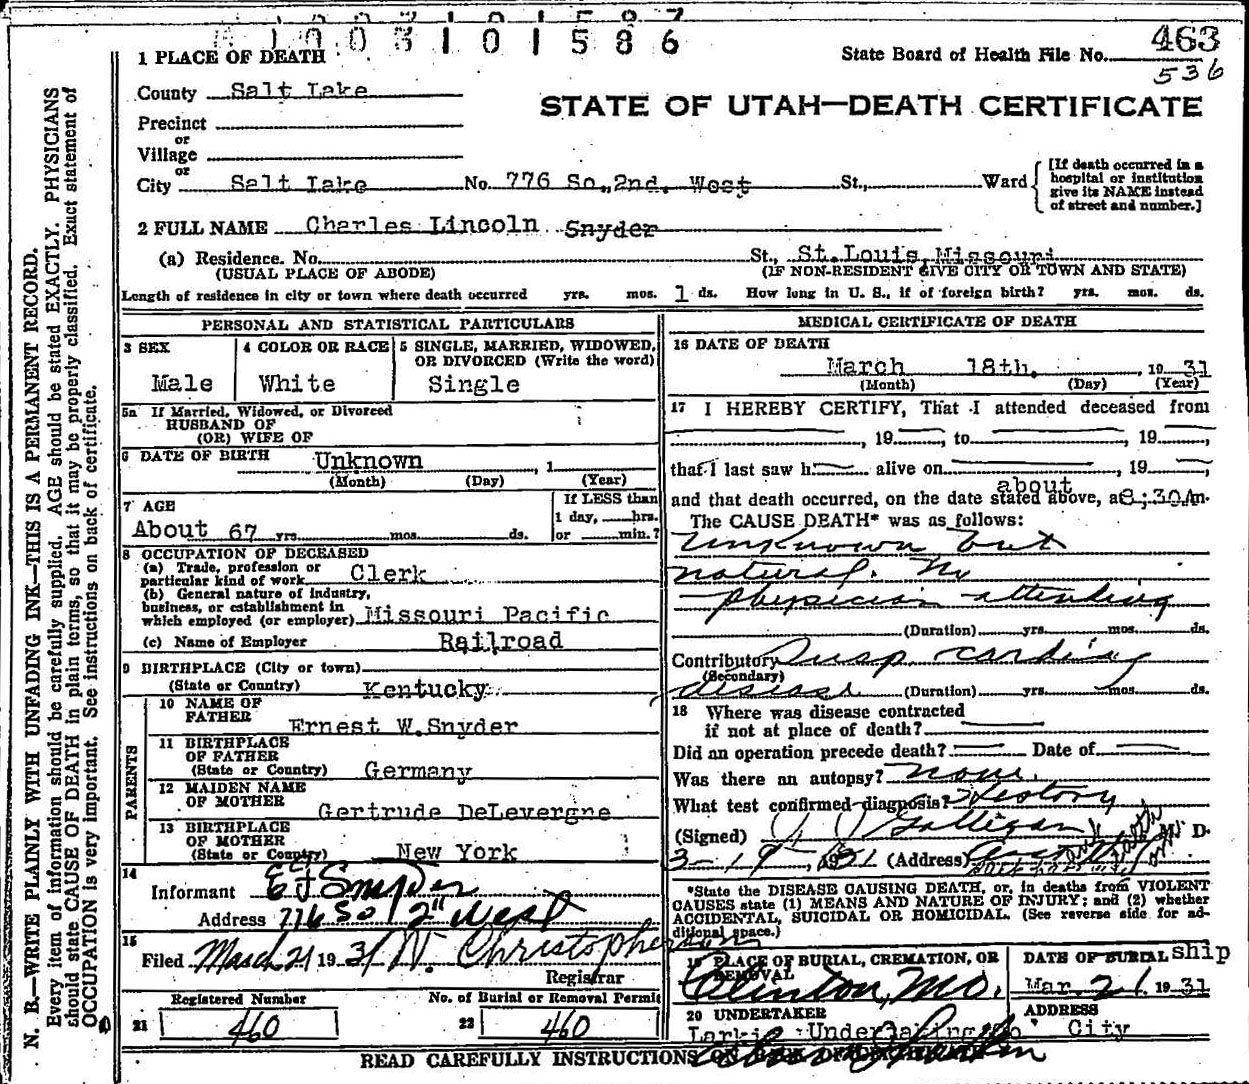 1003101586
State Board of Health File No. 463
536
1 PLACE OF DEATH
County Salt Lake
STATE OF UTAH—DEATH CERTIFICATE
Precinct
or
Village
or
City Salt Lake No. 776 So., 2nd. West St., Ward
[If death occurred in a hospital or institution give its NAME instead of street and number.]
2 FULL NAME Charles Lincoln Snyder
(a) Residence. No. St., St. Louis, Missouri
(USUAL PLACE OF ABODE) (IF NON-RESIDENT GIVE CITY OR TOWN AND STATE)
Length of residence in city or town where death occurred yrs. mos. 1 ds. How long in U. S., if of foreign birth? yrs. mos. ds.
PERSONAL AND STATISTICAL PARTICULARS
3 SEX
Male
4 COLOR OR RACE
White
5 SINGLE, MARRIED, WIDOWED,
OR DIVORCED (Write the word)
Single
5a If Married, Widowed, or Divorced
HUSBAND OF
(OR) WIFE OF
6 DATE OF BIRTH Unknown , 1
(Month) (Day) (Year)
7 AGE
About 67 yrs. mos. ds.
If LESS than
1 day, hrs.
or min.?
8 OCCUPATION OF DECEASED
(a) Trade, profession or
particular kind of work Clerk
(b) General nature of industry,
business, or establishment in
which employed (or employer) Missouri Pacific
(c) Name of Employer Railroad
9 BIRTHPLACE (City or town)
(State or Country) Kentucky
PARENTS
10 NAME OF
FATHER Ernest W. Snyder
11 BIRTHPLACE
OF FATHER
(State or Country) Germany
12 MAIDEN NAME
OF MOTHER Gertrude DeLevergne
13 BIRTHPLACE
OF MOTHER
(State or Country) New York
14
Informant E J Snyder
Address 776 So 2" West
15
Filed March 21 1931 W. Christopherson
Registrar
Registered Number
21 460
No. of Burial or Removal Permit
22 460
MEDICAL CERTIFICATE OF DEATH
16 DATE OF DEATH
March 18th. , 19 31
(Month) (Day) (Year)
17 I HEREBY CERTIFY, That I attended deceased from
, 19 , to , 19 ,
that I last saw h alive on , 19 ,
about
and that death occurred, on the date stated above, at 8;30A m.
The CAUSE DEATH* was as follows:
Unknown but
natural. No
physician attending
(Duration) yrs. mos. ds.
Contributory Susp cardiac
(Secondary)
disease (Duration) yrs. mos. ds.
18 Where was disease contracted
if not at place of death?
Did an operation precede death? Date of
Was there an autopsy? none.
What test confirmed diagnosis? History
(Signed) J J Galligan M. D.
3-19-, 1931 (Address)
*State the DISEASE CAUSING DEATH, or, in deaths from VIOLENT
CAUSES state (1) MEANS AND NATURE OF INJURY; and (2) whether
ACCIDENTAL, SUICIDAL OR HOMICIDAL. (See reverse side for ad-
ditional space.)
19 PLACE OF BURIAL, CREMATION, OR
REMOVAL
Clinton, Mo.
DATE OF BURIAL ship
Mar. 21 19 31
20 UNDERTAKER
Larkin Undertaking Co
ADDRESS
City
READ CAREFULLY INSTRUCTIONS ON BACK OF
N. B.—WRITE PLAINLY WITH UNFADING INK—THIS IS A PERMANENT RECORD.
Every item of information should be carefully supplied. AGE should be stated EXACTLY. PHYSICIANS
should state CAUSE OF DEATH in plain terms, so that it may be properly classified. Exact statement of
OCCUPATION is very important. See instructions on back of certificate.